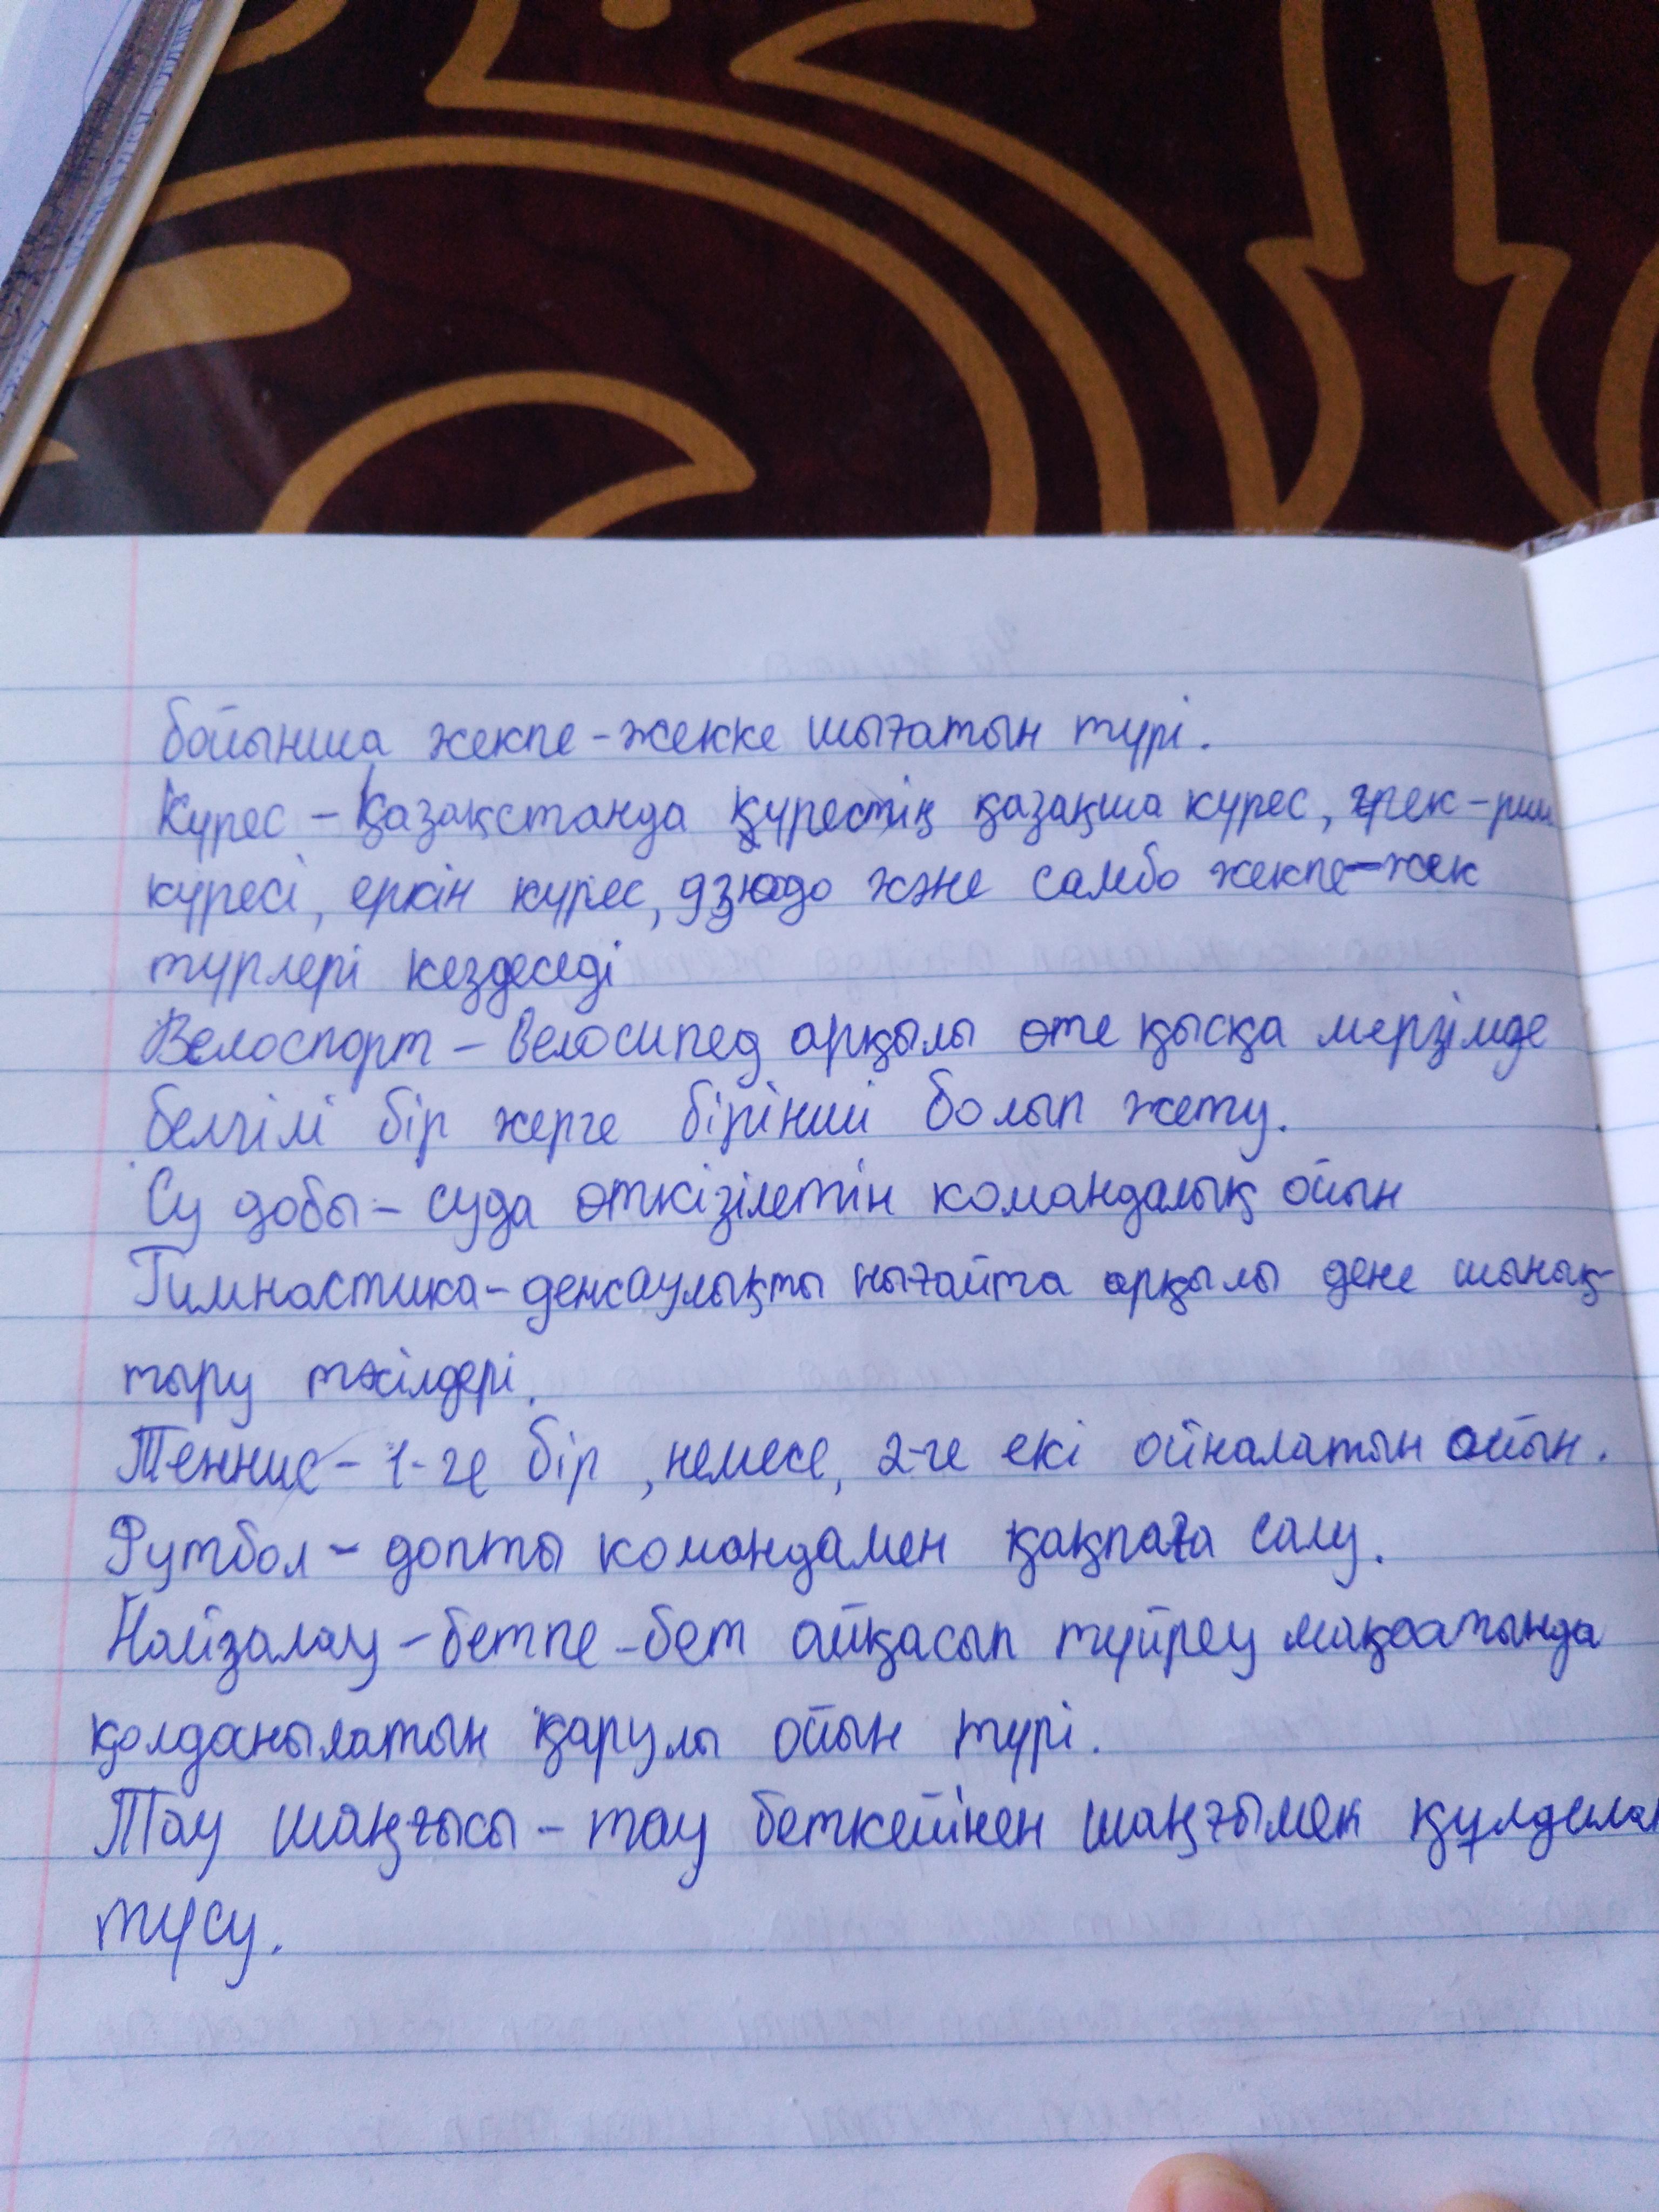 бойынша жекпе-жекке шығатын түрі.
Күрес - Қазақстанда күрестің қазақша күрес, грек-рим
күресі, еркін күрес, дзюдо және самбо жекпе-жек
түрлері кездеседі
Велоспорт - велосипед арқылы өте қысқа мерзімде
белгілі бір жерге бірінші болып жету.
Су добы - суда өткізілетін командалық ойын
Гимнастика - денсаулықты нығайта арқылы дене шынық-
тыру тәсілдері.
Теннис - 1-ге бір, немесе, 2-ге екі ойналатын ойын.
Футбол - допты командамен қақпаға салу.
Найзалау - бетпе-бет айқасып түйреу мақсатында
қолданылатын қарулы ойын түрі.
Тау шаңғысы - тау беткейінен шаңғымен
түсу.